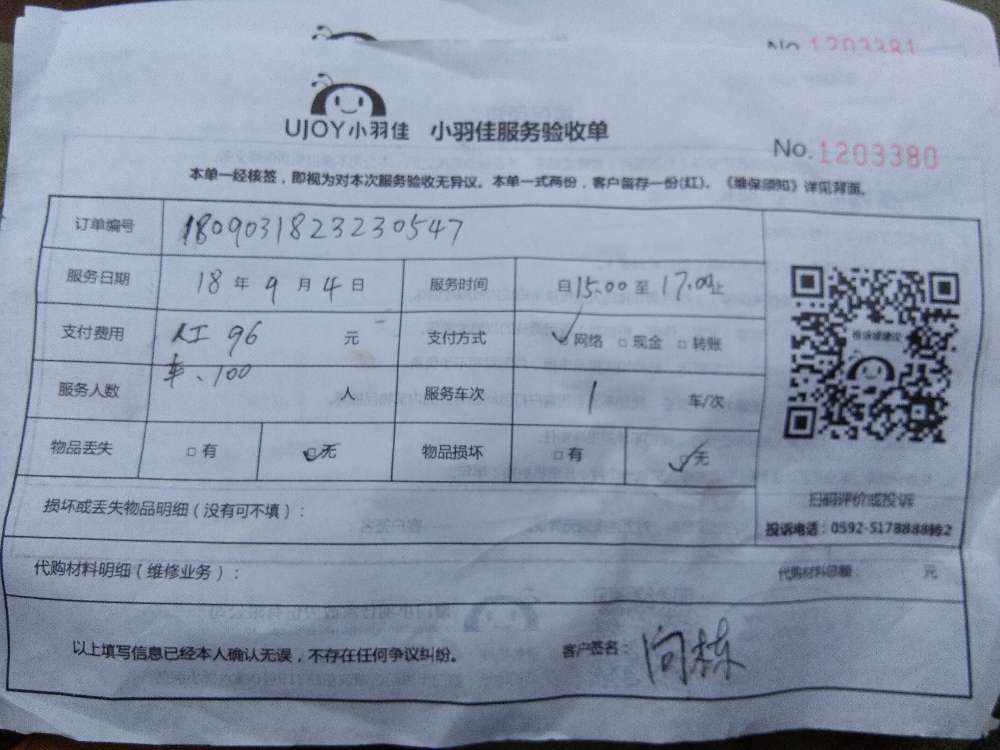 No 1203381
UJOY小羽佳 小羽佳服务验收单
No. 1203380
本单一经核签，即视为对本次服务验收无异议。本单一式两份，客户留存一份(红)。《维保须知》详见背面。
订单编号 1809031823230547
服务日期 18 年 9 月 4 日 服务时间 自15:00 至 17:00止
支付费用 人工 96 元 支付方式 ☑网络 □现金 □转账
车、100
服务人数 人 服务车次 1 车/次
物品丢失 □有 ☑无 物品损坏 □有 ☑无
投诉或建议
扫码评价或投诉
投诉电话：0592-5178888转2
损坏或丢失物品明细（没有可不填）：
代购材料明细（维修业务）： 代购材料总额： 元
以上填写信息已经本人确认无误，不存在任何争议纠纷。 客户签名：向栋